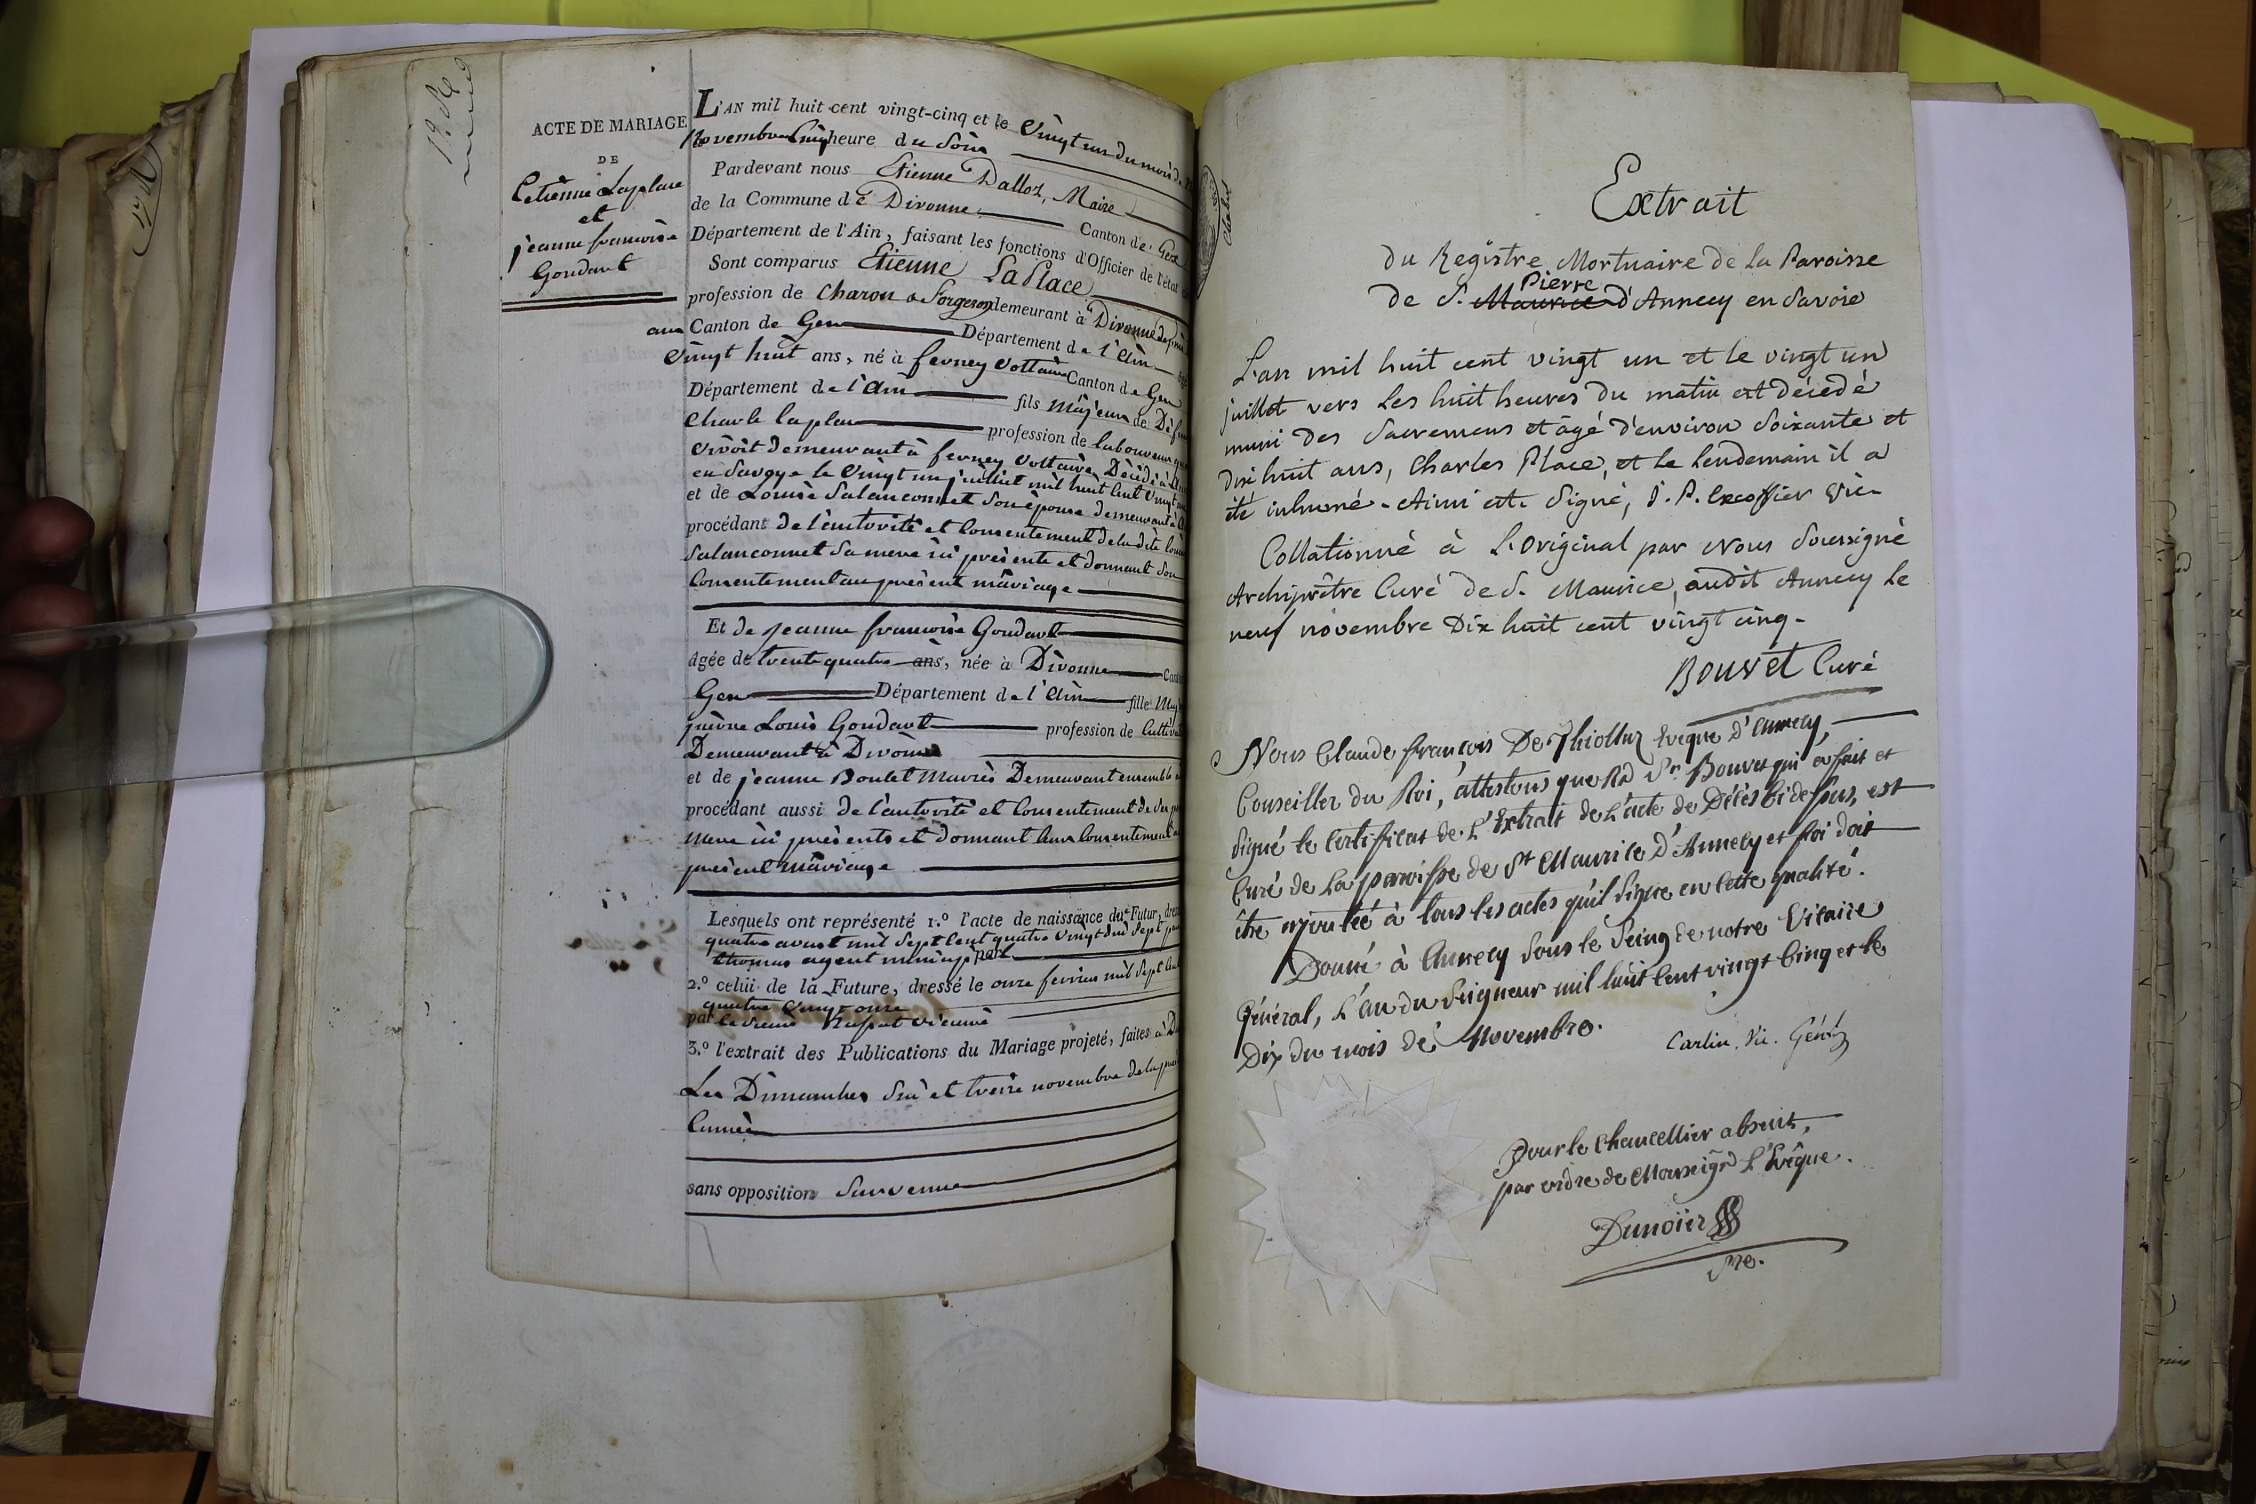 ACTE DE MARIAGE
DE
Etienne Laplace
et
jeanne francoise
Goudard
L'AN mil huit cent vingt-cinq et le Vingt un du mois de
Novembre cinq heure du Soir
Pardevant nous Etienne Dalloz, Maire
de la Commune de Divonne Canton de Gex
Département de l'Ain, faisant les fonctions d'Officier de l'état
Sont comparus Etienne La Place
profession de Charon & Forgeron demeurant à Divonne
Canton de Gex Département de l'Ain
Vingt huit ans, né à ferney Voltaire Canton de Gex
Département de l'Ain fils Majeur de
Charle laplace profession de laboureur
Vivoit demeurant à ferney Voltaire Décédé à
en Savoye le Vingt un juilliet mil huit Cent Vingt
et de Louise Salanconnet Son épouse demeurant à
procédant de l'autorité et Consentement de la dite
Salanconnet Sa mere ici présente et donnant Son
Consentement au présent mariage
Et de jeanne francoise Goudard
âgée de trente quatre ans, née à Divonne
Gex Département de l'Ain fille
Louis Goudard profession de
Demeurant à Divonne
et de jeanne Boulet Mariés Demeurant ensemble
procédant aussi de l'autorité et Consentement de
Mere ici présents et donnant leur Consentement
présent mariage
Lesquels ont représenté 1.º l'acte de naissance du Futur,
quatre avout mil Sept Cent quatre Vingt dix Sept
Thomas agent par
2.º celui de la Future, dressé le onze fevrier mil Sept Cent
quatre Vingt onze
par le Sieur
3.º l'extrait des Publications du Mariage projeté, faites à
Les Dimanches Six et treize novembre de la
année
sans opposition Survenue
Extrait
du Registre Mortuaire de la Paroisse
Pierre
de S. Maurice d'Annecy en Savoie
L'an mil huit cent vingt un et le vingt un
juillet vers les huit heures du matin est décedé
muni des Sacremens et âgé d'environ Soixante et
dix huit ans, Charles Place, et le lendemain il a
été inhumé. Ainsi est Signé, J. P. Excoffier Vic.
Collationné à L'original par Nous Soussigné
Archiprêtre Curé de S. Maurice, audit Annecy le
neuf novembre Dix huit cent vingt cinq.
Bouvet Curé
Nous Claude françois De Thiollaz Evêque d'Annecy,
Conseiller du Roi, attestons que Rd Sr. Bouvet qui a fait et
Signé le Certificat de L'Extrait de L'acte de Décès Ci dessus, est
Curé de La paroisse de St Maurice D'Annecy et foi doit
être ajoutée à tous les actes qu'il Signe en Cette qualité.
Donné à Annecy Sous le Seing de notre Vicaire
Général, L'an du Seigneur mil huit Cent vingt Cinq et le
Dix du mois de Novembre.
Carlin, Vic. Génér
Pour le Chancellier absent,
par ordre de Monseigr L'Evêque.
Dunoïer